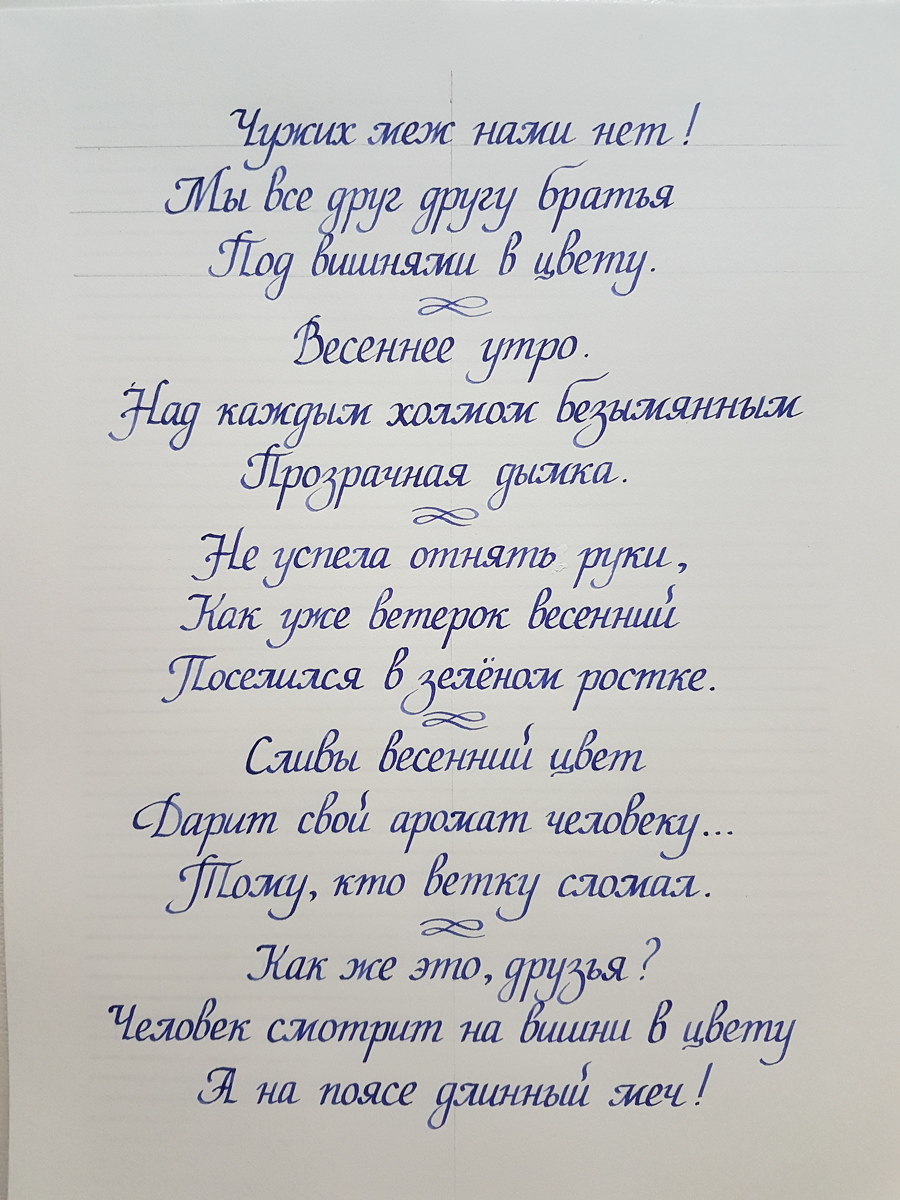 Чужих меж нами нет!
Мы все друг другу братья
Под вишнями в цвету.
Весеннее утро.
Над каждым холмом безымянным
Прозрачная дымка.
Не успела отнять руки,
Как уже ветерок весенний
Поселился в зелёном ростке.
Сливы весенний цвет
Дарит свой аромат человеку...
Тому, кто ветку сломал.
Как же это, друзья?
Человек смотрит на вишни в цвету
А на поясе длинный меч!